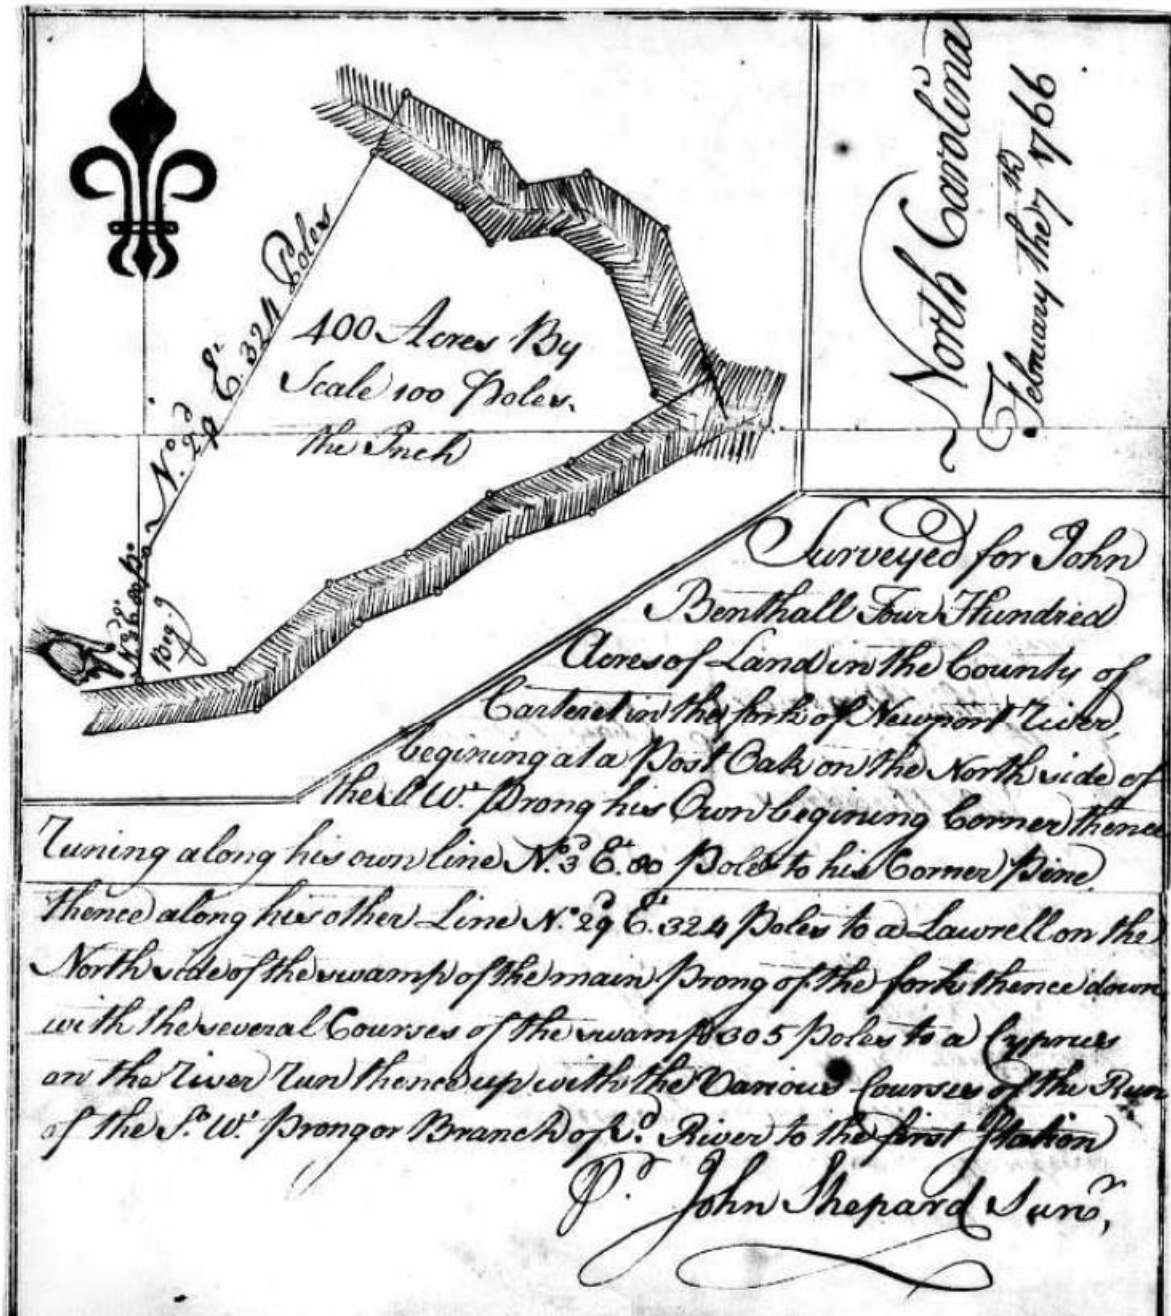 North Carolina
February the 7th 1766
No. 29d Et. 324 Poles
400 Acres By
Scale 100 Poles.
the Inch
No. 3d Et. 80 Po.
Beg.g
Surveyed for John
Benthall Four Hundred
Acres of Land in the County of
Carteret in the fork of Newport River,
begining at a Post Oak on the North side of
the S. Wt. Prong his Own begining Corner thence
Runing along his own line No. 3d Et. 80 Poles to his Corner Pine
thence along his other Line No. 29d Et. 324 Poles to a Lawrell on the
North side of the swamp of the main Prong of the fork thence down
with the several Courses of the swamp 305 Poles to a Cyprus
on the River Run thence up with the Various Courses of the Run
of the So. Wt. Prong or Branch of sd. River to the first Station
Pr. John Shepard Survr,